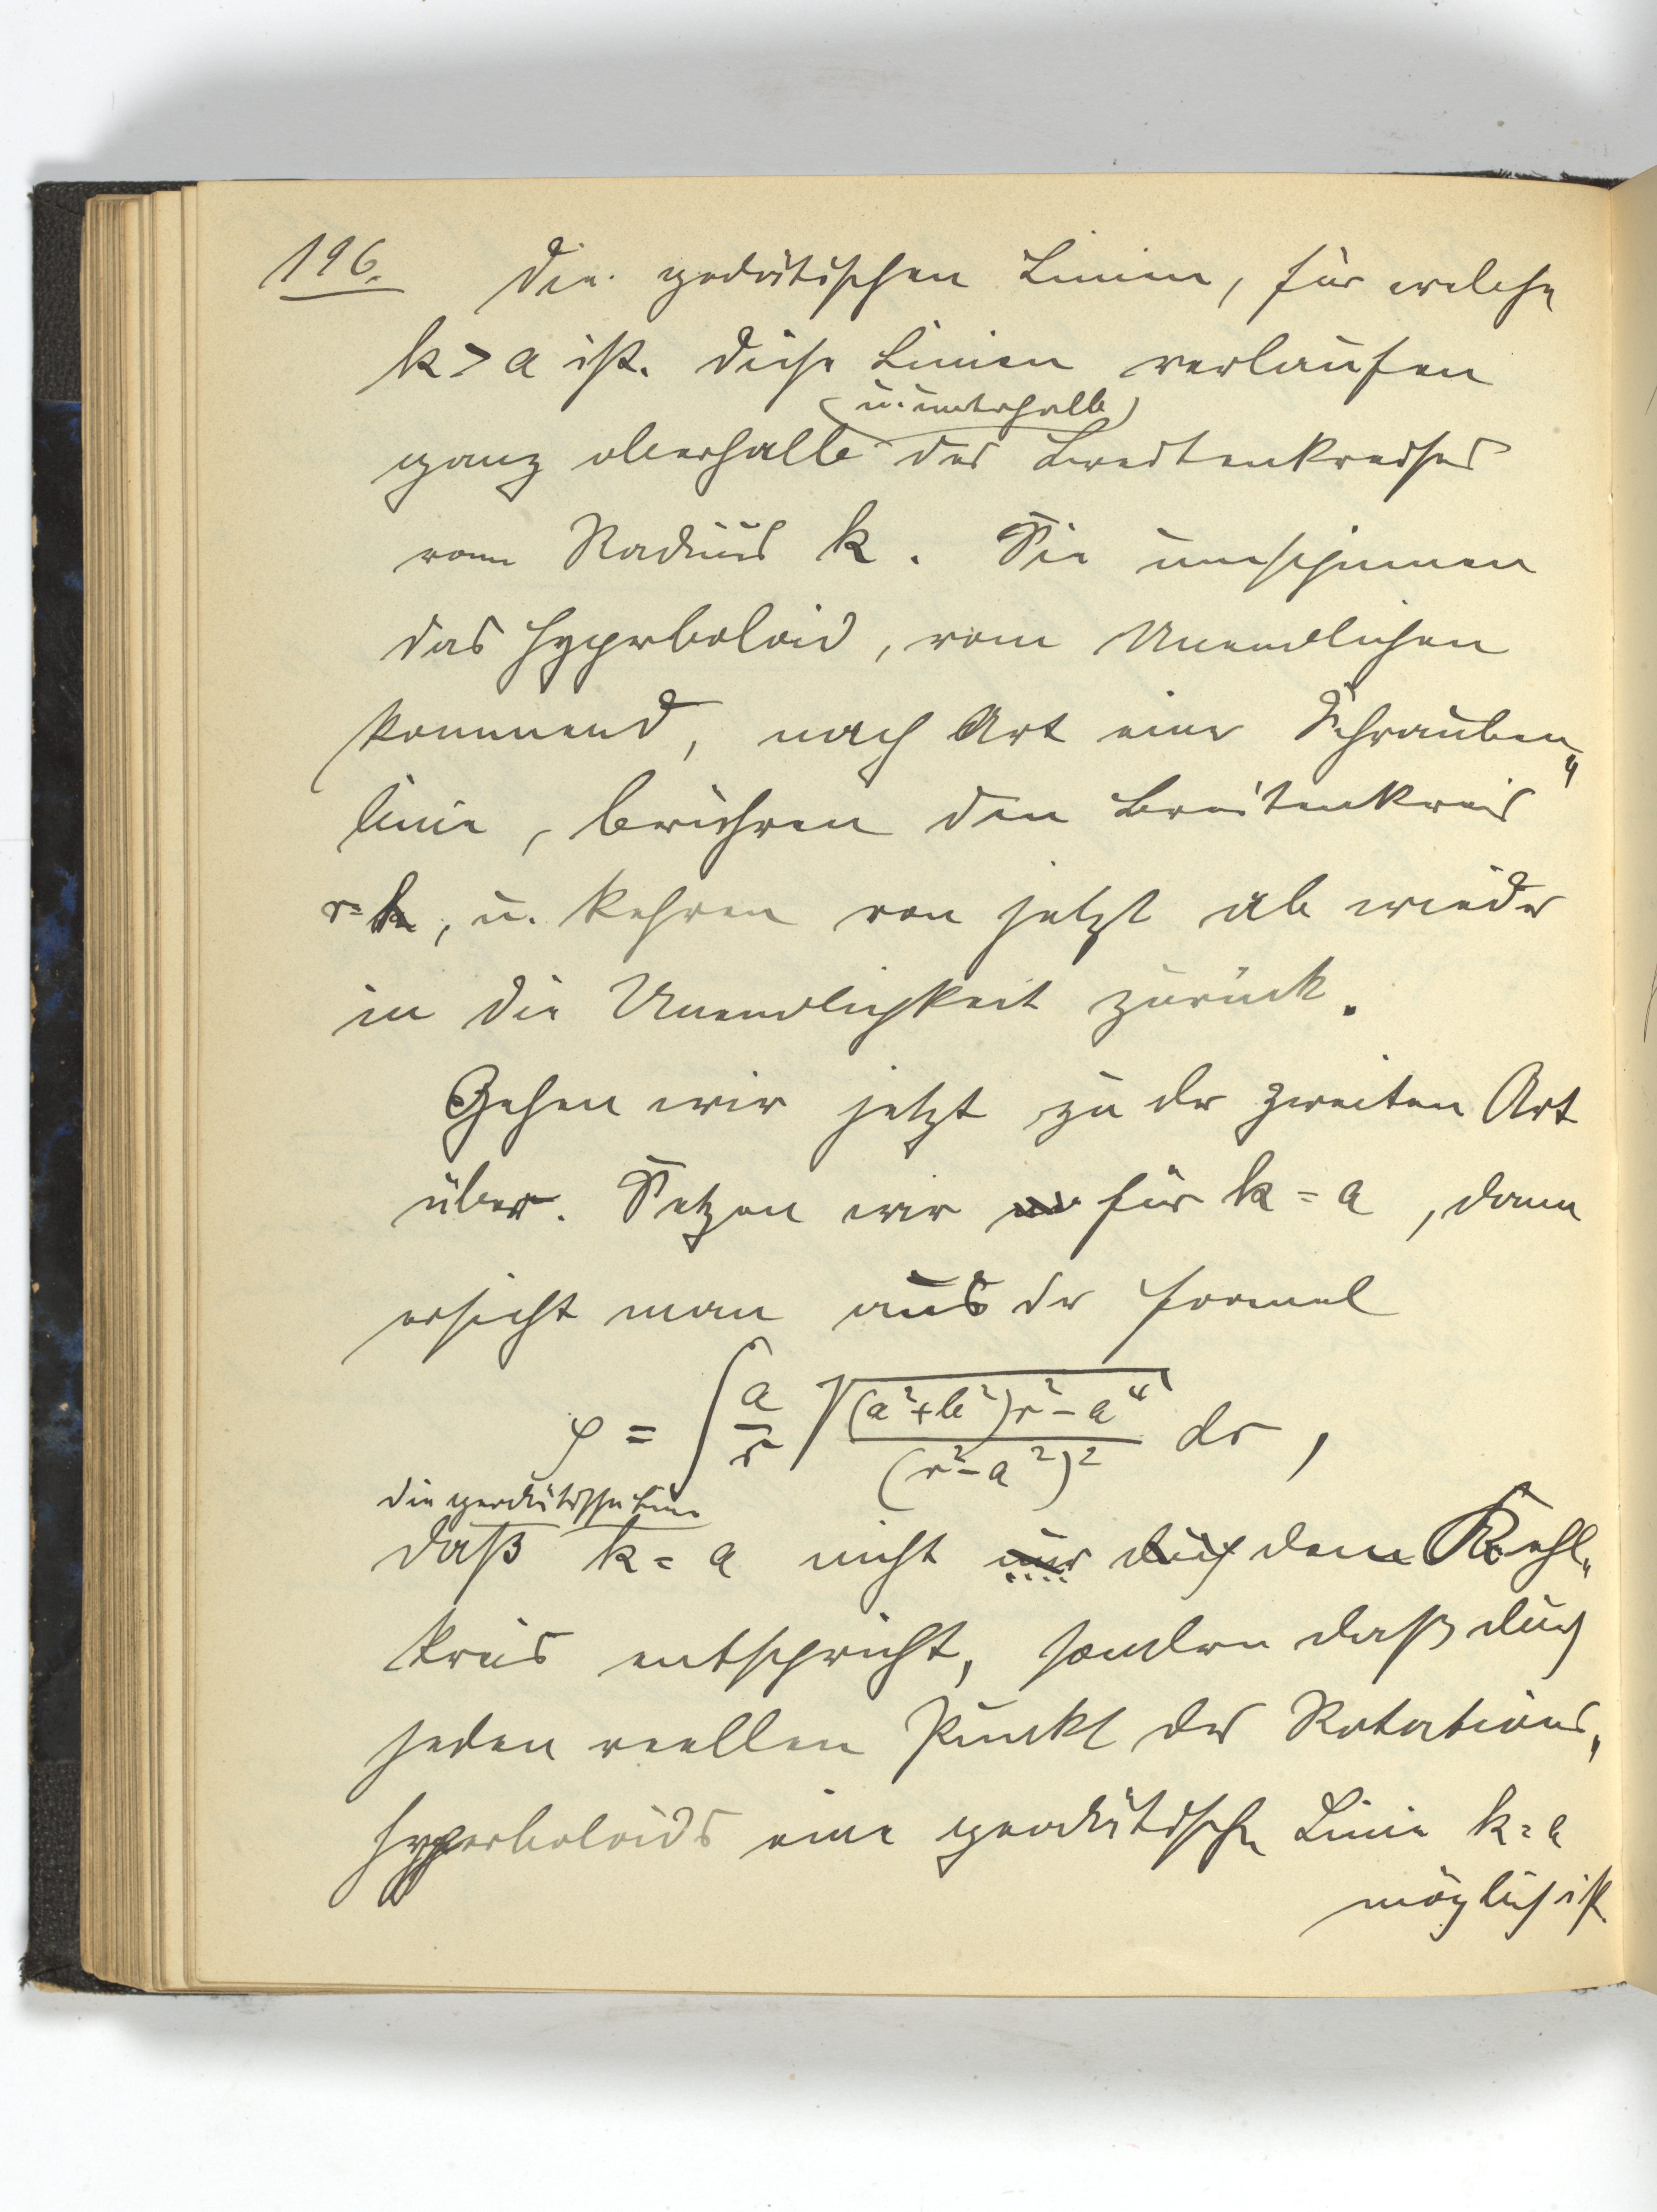 196. Die geodätischen Linien, für welche
k > a ist. Diese Linien verlaufen
(u. unterhalb)
ganz oberhalb des Breitenkreises
vom Radius k. Sie umspinnen
das Hyperboloid, vom Unendlichen
kommend, nach Art einer Schrauben„
linie, berühren den Breitenkreis
r=k, u. kehren von jetzt ab wieder
in die Unendlichkeit zurück.
Gehen wir jetzt zu der zweiten Art
über. Setzen wir für k = a, dann
ersieht man aus der Formel
φ = ∫ a/r √((a²+b²)r²-a⁴)/(r²-a²)² dr,
die geodätische Linie
daß k = a nicht nur dem Kehl„
kreis entspricht, sondern daß durch
jeden reellen Punkt des Rotations„
hyperboloids eine geodätische Linie k=a
möglich ist